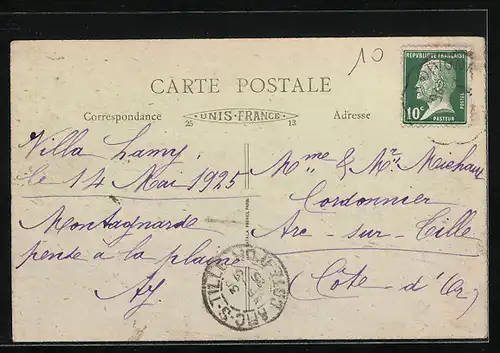 10
CARTE POSTALE
Correspondance
UNIS-FRANCE
25 13
Adresse
RÉPUBLIQUE FRANÇAISE
POSTES
10c
PASTEUR
Villa Lamy.
le 14 Mai 1925
Montagnarde
pense à la plaine
Ay.
Mme & Mr Michaux
Cordonnier
Arc-sur-Tille
(Côte-d'Or)
ARC-S-TILLE CÔTE-D'OR